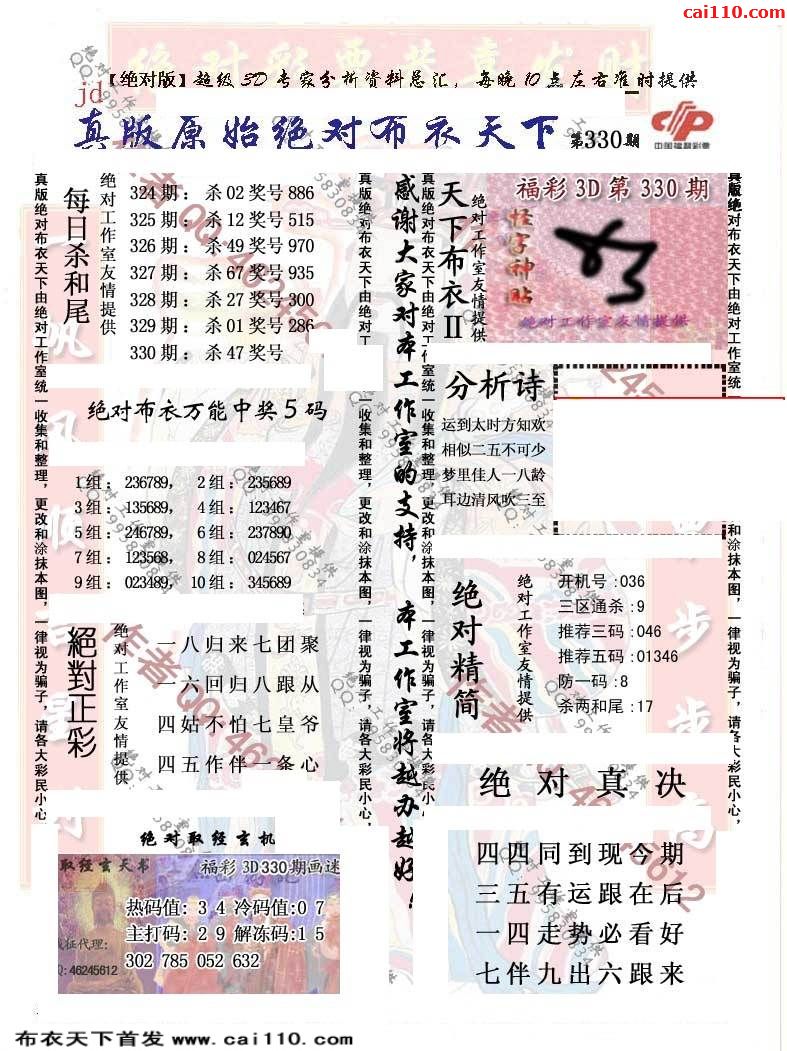 cai110.com
【绝对版】超级3D专家分析资料总汇，每晚10点左右准时提供
jd
真版原始绝对布衣天下 第330期
中国福利彩票
真版绝对布衣天下由绝对工作室统一收集和整理，更改和涂抹本图，一律视为骗子，请各大彩民小心，
每日杀和尾
绝对工作室友情提供
324期：杀02奖号886
325期：杀12奖号515
326期：杀49奖号970
327期：杀67奖号935
328期：杀27奖号300
329期：杀01奖号286
330期：杀47奖号
绝对布衣万能中奖5码
1组：236789， 2组：235689
3组：135689， 4组：123467
5组：246789， 6组：237890
7组：123568， 8组：024567
9组：023489， 10组：345689
絕對正彩
绝对工作室友情提供
一八归来七团聚
一六回归八跟从
四姑不怕七皇爷
四五作伴一条心
绝对取经玄机
取经玄天书
福彩3D330期画迷
热码值：34冷码值:07
主打码：29解冻码:15
302 785 052 632
诚征代理:
Q:46245612
真版绝对布衣天下由绝对工作室统一收集和整理，更改和涂抹本图，一律视为骗子，请各大彩民小心，
感谢大家对本工作室的支持，本工作室将越办越好！
真版绝对布衣天下由绝对工作室统一收集和整理，更改和涂抹本图，一律视为骗子，请各大彩民小心，
天下布衣II
绝对工作室友情提供
福彩3D第330期
怪字神贴
绝对工作室友情提供
分析诗
运到太时方知欢
相似二五不可少
梦里佳人一八龄
耳边清风吹三至
绝对精简
绝对工作室友情提供
开机号:036
三区通杀:9
推荐三码:046
推荐五码:01346
防一码:8
杀两和尾:17
绝对真决
四四同到现今期
三五有运跟在后
一四走势必看好
七伴九出六跟来
真版绝对布衣天下由绝对工作室统一和涂抹本图，一律视为骗子，请各大彩民小心，
布衣天下首发 www.cai110.com